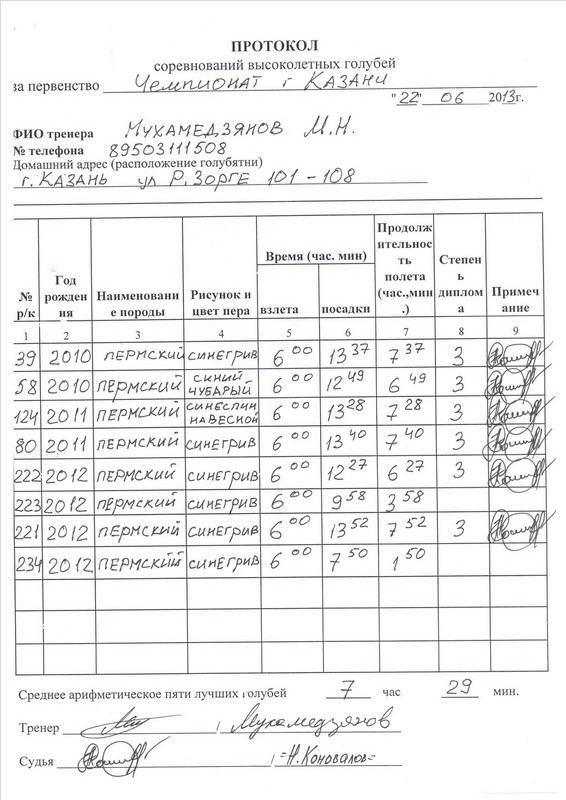 ПРОТОКОЛ
соревнований высоколетных голубей
за первенство Чемпионат г Казани
"22" 06 2013г.
ФИО тренера Мухамедзянов М.Н.
№ телефона 89503111508
Домашний адрес (расположение голубятни)
г. Казань ул Р. Зорге 101-108
№ р/к Год рождения Наименование породы Рисунок и цвет пера Время (час. мин) взлета посадки Продолжительность полета (час.,мин.) Степень диплома Примечание
1 2 3 4 5 6 7 8 9
39 2010 Пермский синегрив 6 00 13 37 7 37 3
58 2010 Пермский синий чубарый 6 00 12 49 6 49 3
124 2011 Пермский синеспин навесной 6 00 13 28 7 28 3
80 2011 Пермский синегрив 6 00 13 40 7 40 3
222 2012 Пермский синегрив 6 00 12 27 6 27 3
223 2012 Пермский синегрив 6 00 9 58 3 58
221 2012 Пермский синегрив 6 00 13 52 7 52 3
234 2012 Пермский синегрив 6 00 7 50 1 50
Среднее арифметическое пяти лучших голубей 7 час 29 мин.
Тренер / Мухамедзянов
Судья / Н.Коновалов